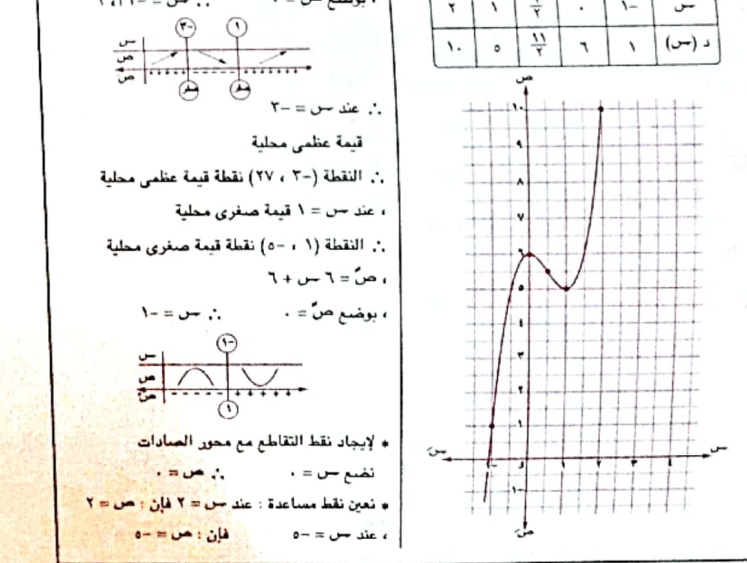 س | -١ | ٠ | ١/٢ | ١ | ٢
د (س) | ١ | ٦ | ١١/٢ | ٥ | ١٠
ص
١٠
٩
٨
٧
٦
٥
٤
٣
٢
١
سَ -١ و ١ ٢ ٣ ٤ س
-١
صَ
، بوضع
س -٣ ١
صَ
ص صفر صفر
∴ عند س = -٣
قيمة عظمى محلية
∴ النقطة (-٣ ، ٢٧) نقطة قيمة عظمى محلية
، عند س = ١ قيمة صغرى محلية
∴ النقطة (١ ، -٥) نقطة قيمة صغرى محلية
، صً = ٦ س + ٦
، بوضع صً = ٠ ∴ س = -١
س -١
صً
ص ١
* لإيجاد نقط التقاطع مع محور الصادات
نضع س = ٠ ∴ ص = ٠
* نعين نقط مساعدة : عند س = ٢ فإن : ص = ٢
، عند س = -٥ فإن : ص = -٥